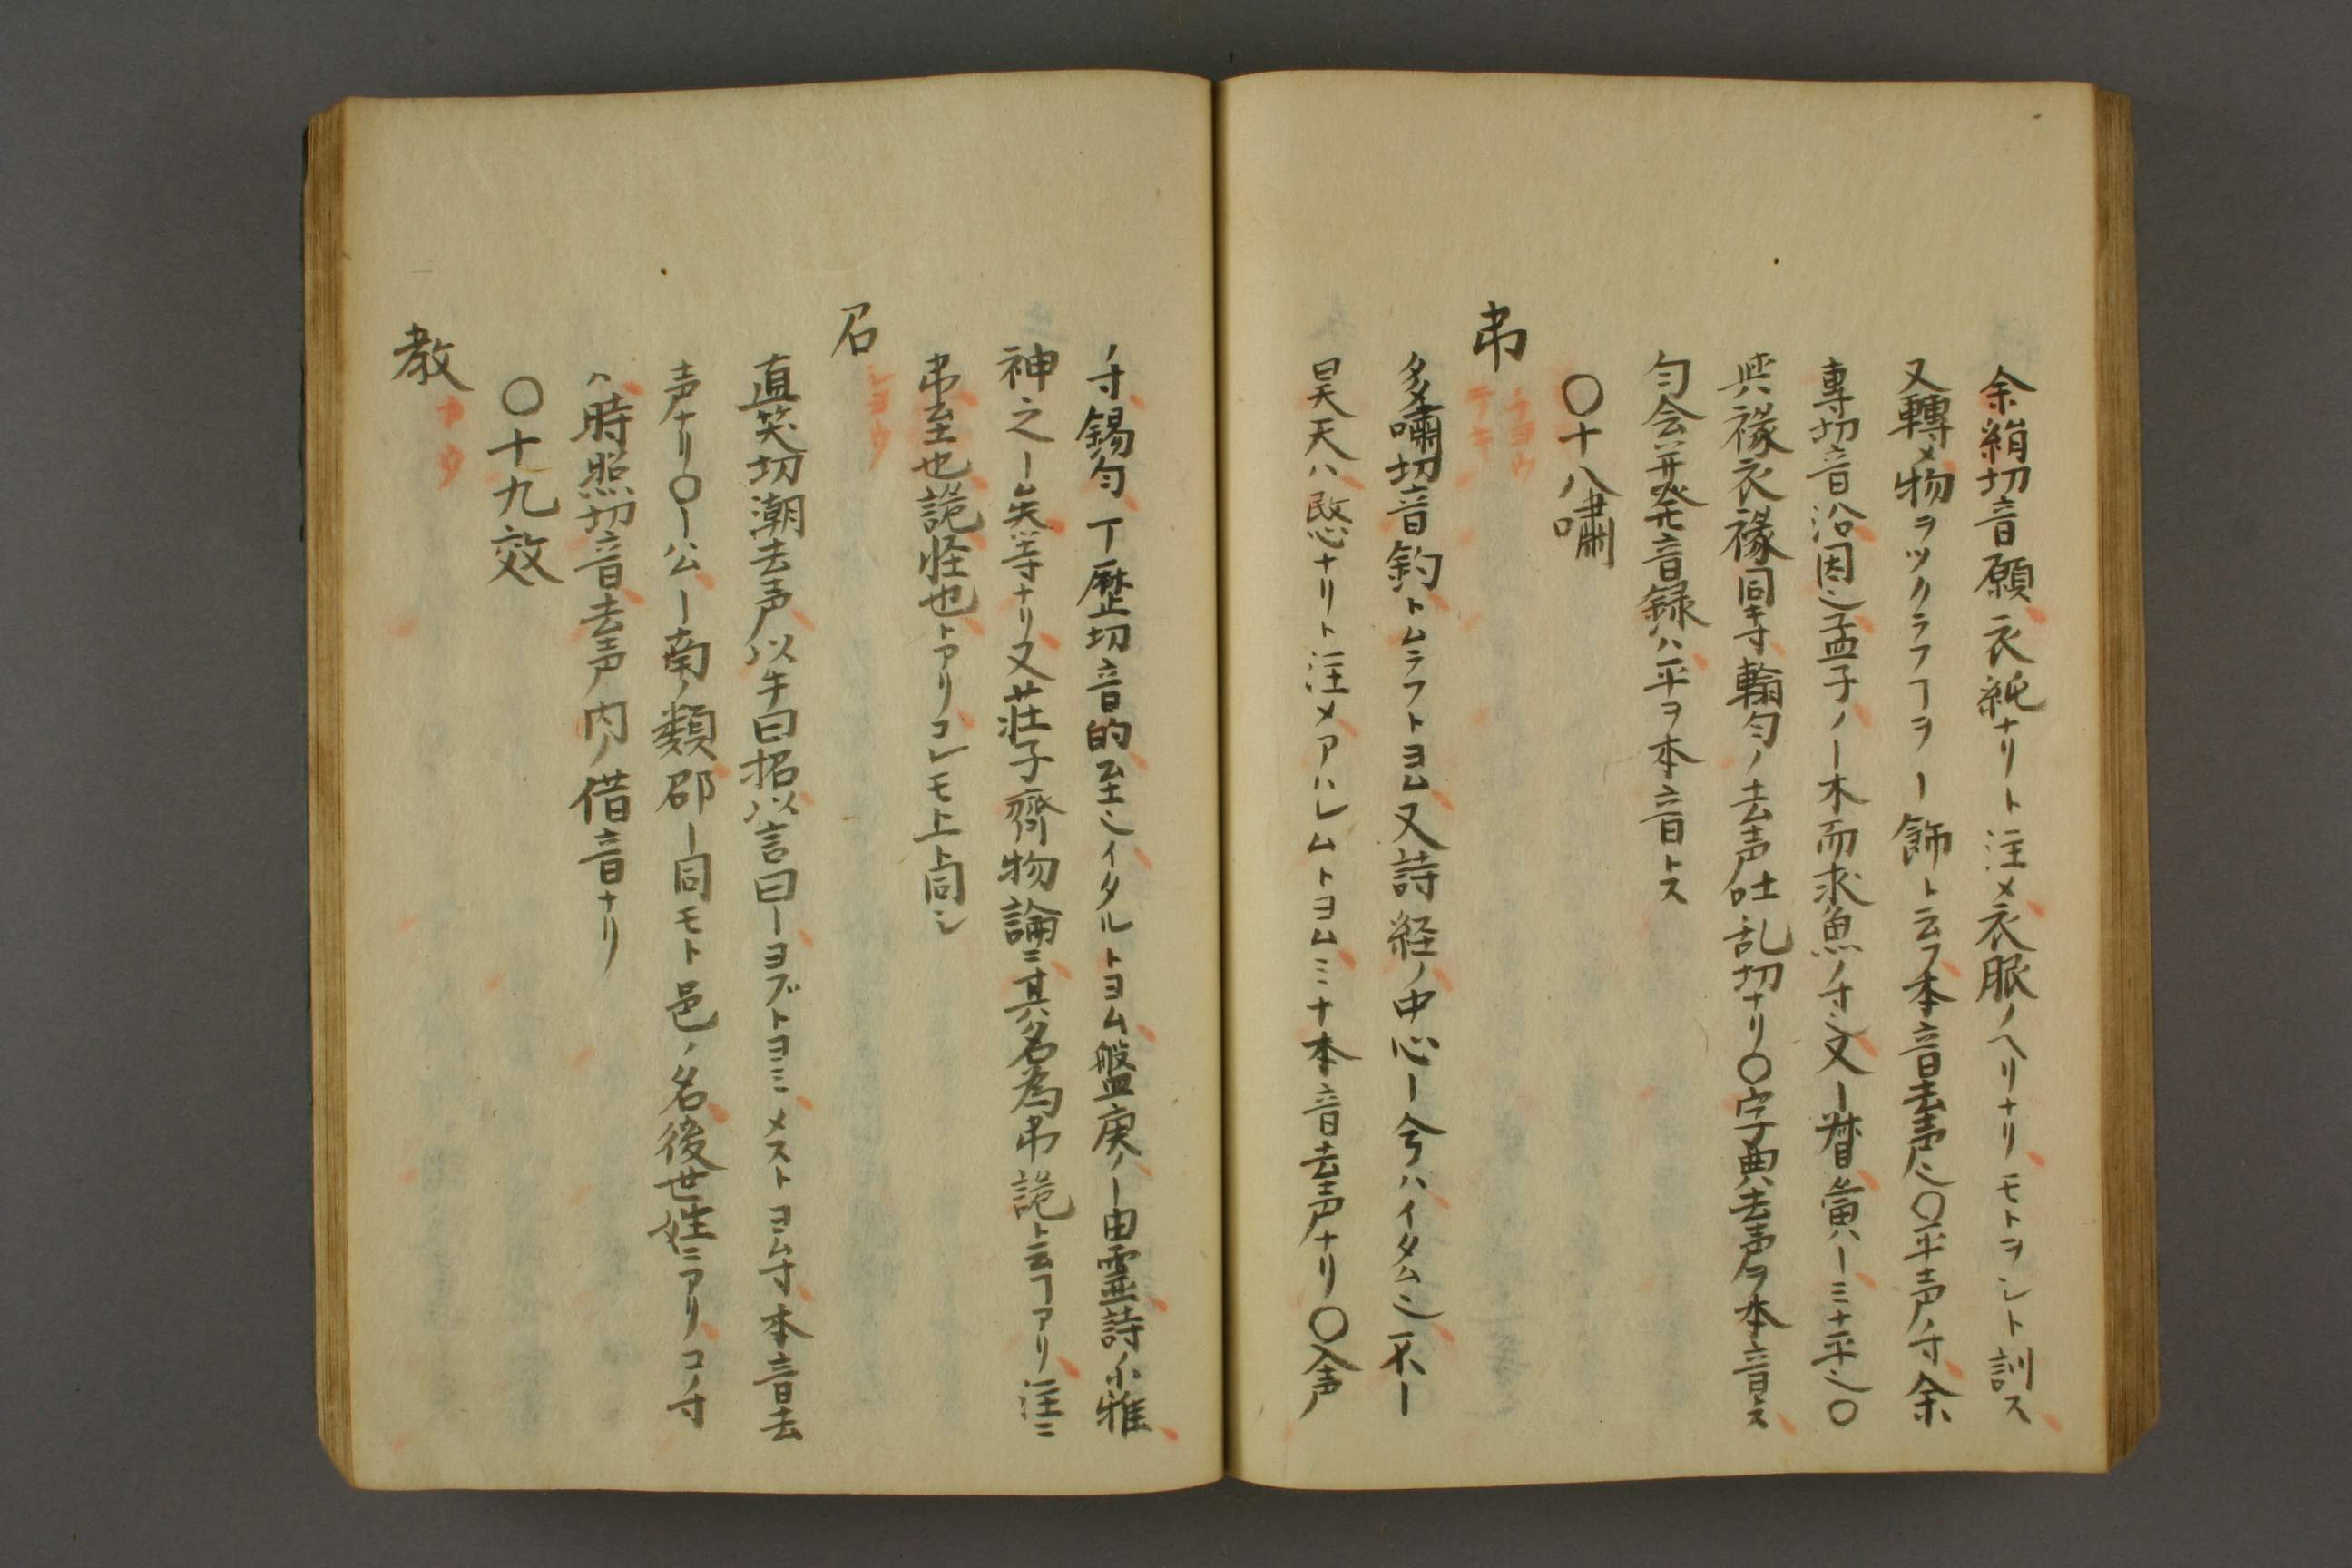 余絹切音願衣純ナリト注メ衣服ノヘリナリモトヲシト訓ス
又轉メ物ヲツクラフヿヲー飾ト云フ本音去声也〇平声ノ寸余
專切音沿因也孟子ノー木而求魚ノ寸也文ー督夤ーミナ平也〇
與褖衣褖同キ寸輪匀ノ去声吐乱切ナリ〇字典去声ヲ本音トス
匀会并発音録ハ平ヲ本音トス
〇十八嘯
弔
チヨウ
テキ
多嘯切音釣トムラフトヨム又詩経ノ中心ー今ハイタム也不ー
昊天ハ愍ナリト注メアハレムトヨムミナ本音去声ナリ〇入声
ノ寸錫匀丁歴切音的至也イタルトヨム盤庚ノー由霊詩小雅
神之ー矣等ナリ又荘子齊物論ニ其名為弔詭ト云ヿアリ注ニ
弔至也詭怪也トアリコレモ上ト同シ
召
シヨウ
直笑切潮去声以手曰招以言曰ーヨブトヨミメストヨム寸本音去
声ナリ〇ー公ー南ノ類郡ー同モト邑ノ名後世姓ニアリコノ寸
ハ時照切音去声内ノ借音ナリ
〇十九效
教
カウ